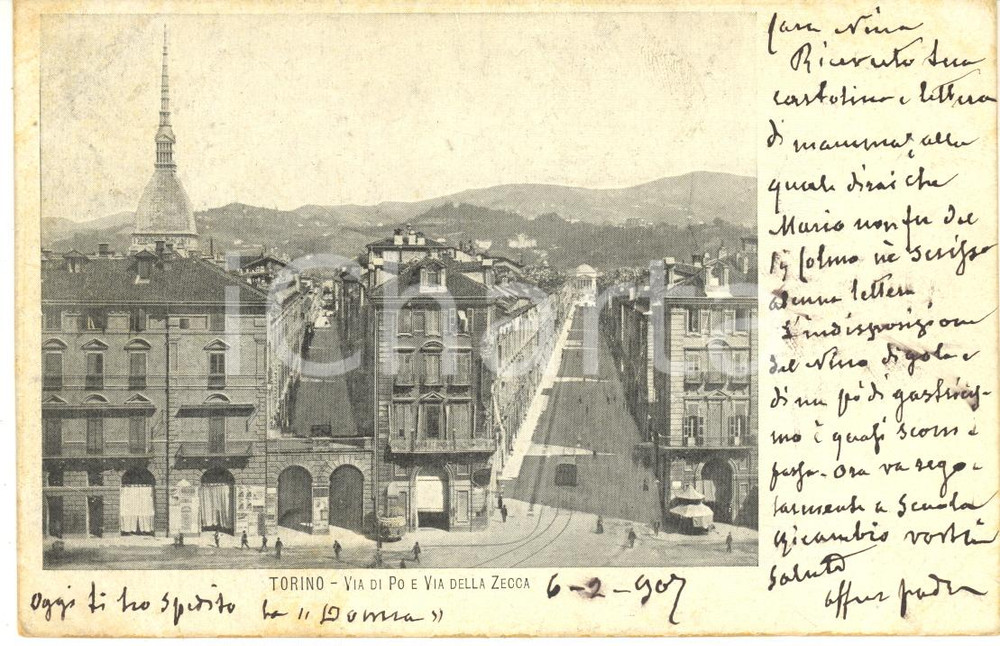 Cara Nina
Ricevuto tua
cartolina e lettera
di mamma, alla
quale dirai che
Mario non fu dal
nè scrisse
alcuna lettera
L'indisposizione
del Nino di gola e
di un pò di gastricis-
mo è quasi scom
parsa. Ora va rego-
larmente a scuola
Ricambio vostri
saluti
aff padre
TORINO - VIA DI PO E VIA DELLA ZECCA
6-2-907
Oggi ti ho spedito la "Donna"
iCharta